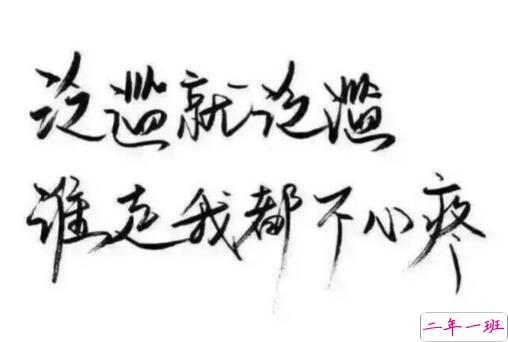 泛滥就泛滥
谁走我都不心疼
二年一班